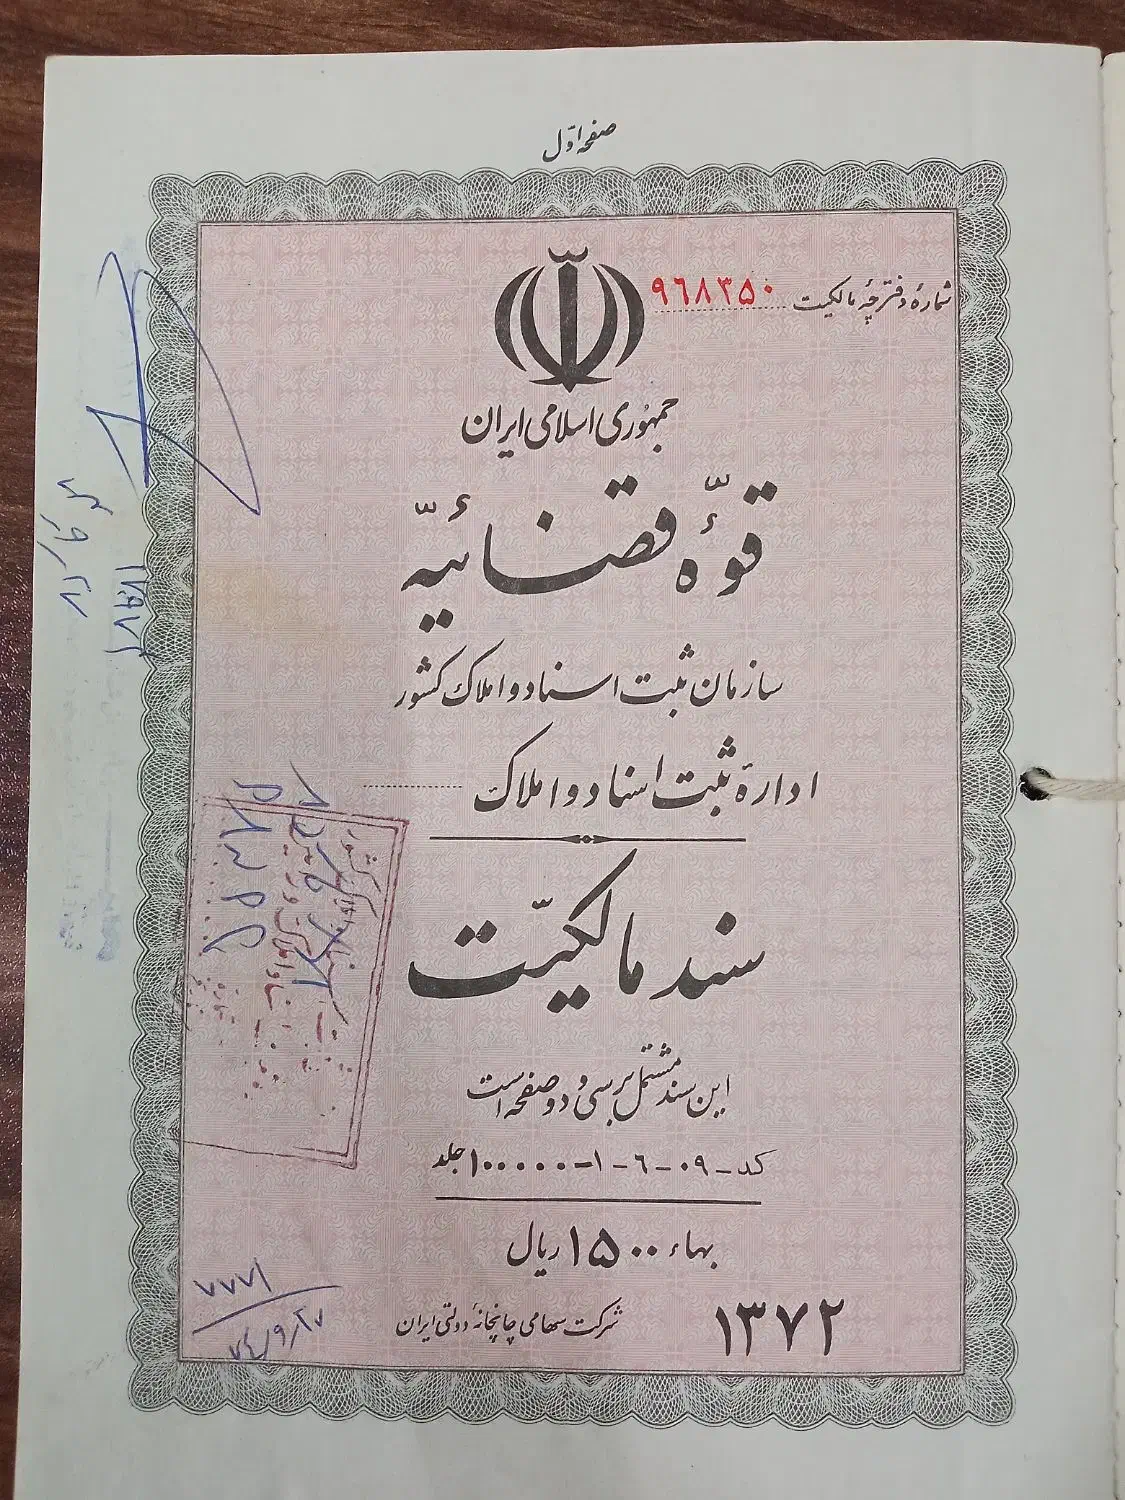 صفحه اوّل
شمارهٔ دفترچهٔ مالکیت ۹۶۸۳۵۰
جمهوری اسلامی ایران
قوّهٔ قضائیّه
سازمان ثبت اسناد و املاک کشور
ادارهٔ ثبت اسناد و املاک
سند مالکیّت
این سند مشتمل بر سی و دو صفحه است
کد - ۰۹ - ۶ - ۱ - ۱۰۰۰۰۰ جلد
بهاء ۱۵۰۰ ریال
۱۳۷۲
شرکت سهامی چاپخانهٔ دولتی ایران
۷۷۷۱
۷۴/۹/۲۷